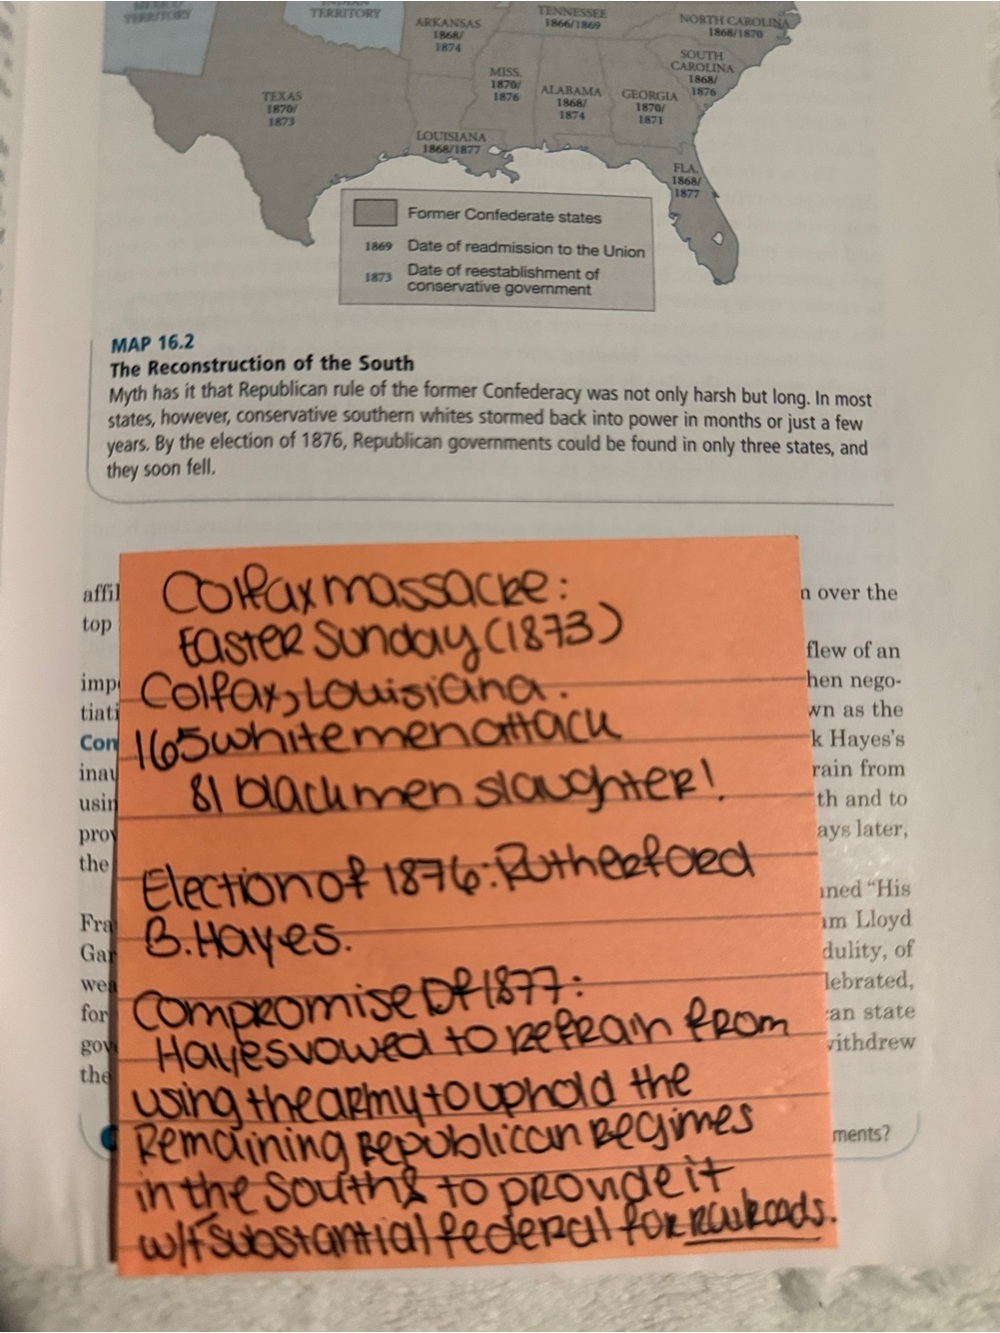 MEXICO
TERRITORY
INDIAN
TERRITORY
ARKANSAS
1868/
1874
TENNESSEE
1866/1869
NORTH CAROLINA
1868/1870
SOUTH
CAROLINA
1868/
1876
MISS.
1870/
1876
ALABAMA
1868/
1874
GEORGIA
1870/
1871
TEXAS
1870/
1873
LOUISIANA
1868/1877
FLA.
1868/
1877
Former Confederate states
1869 Date of readmission to the Union
1873 Date of reestablishment of
conservative government
MAP 16.2
The Reconstruction of the South
Myth has it that Republican rule of the former Confederacy was not only harsh but long. In most
states, however, conservative southern whites stormed back into power in months or just a few
years. By the election of 1876, Republican governments could be found in only three states, and
they soon fell.
Colfax massacre:
Easter Sunday (1873)
Colfax, Louisiana.
165 white men attack
81 black men slaughter!
Election of 1876: Rutherford
B. Hayes.
Compromise Of 1877:
Hayes vowed to refrain from
using the army to uphold the
Remaining Republican Regimes
in the South & to provide it
w/ substantial federal for railroads.
affil
n over the
top
flew of an
imp
hen nego-
tiati
wn as the
Con
k Hayes's
inau
rain from
usin
th and to
prov
ays later,
the
ned "His
Fra
m Lloyd
Gar
dulity, of
wea
lebrated,
for
an state
gov
withdrew
the
ments?